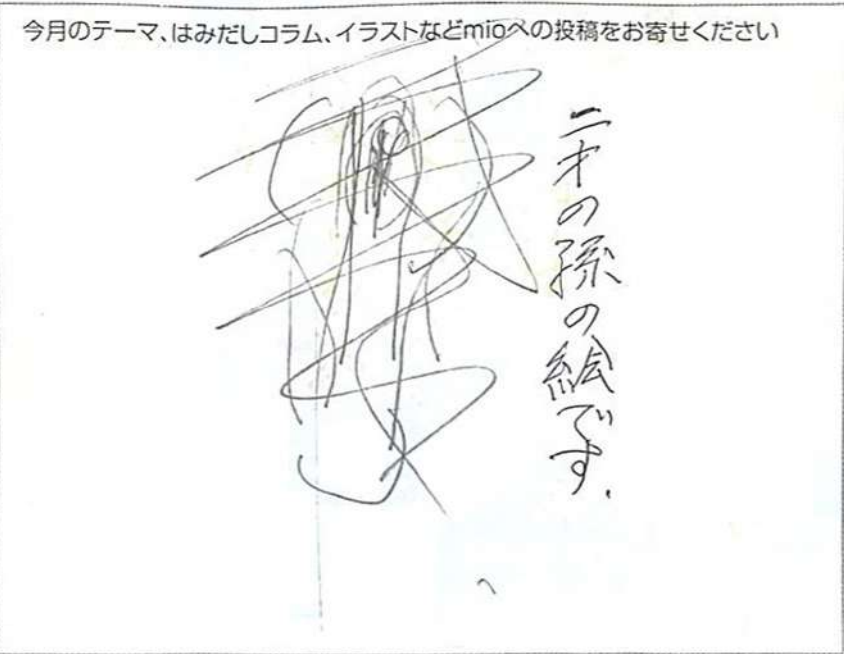 今月のテーマ、はみだしコラム、イラストなどmioへの投稿をお寄せください
二才の孫の絵です.